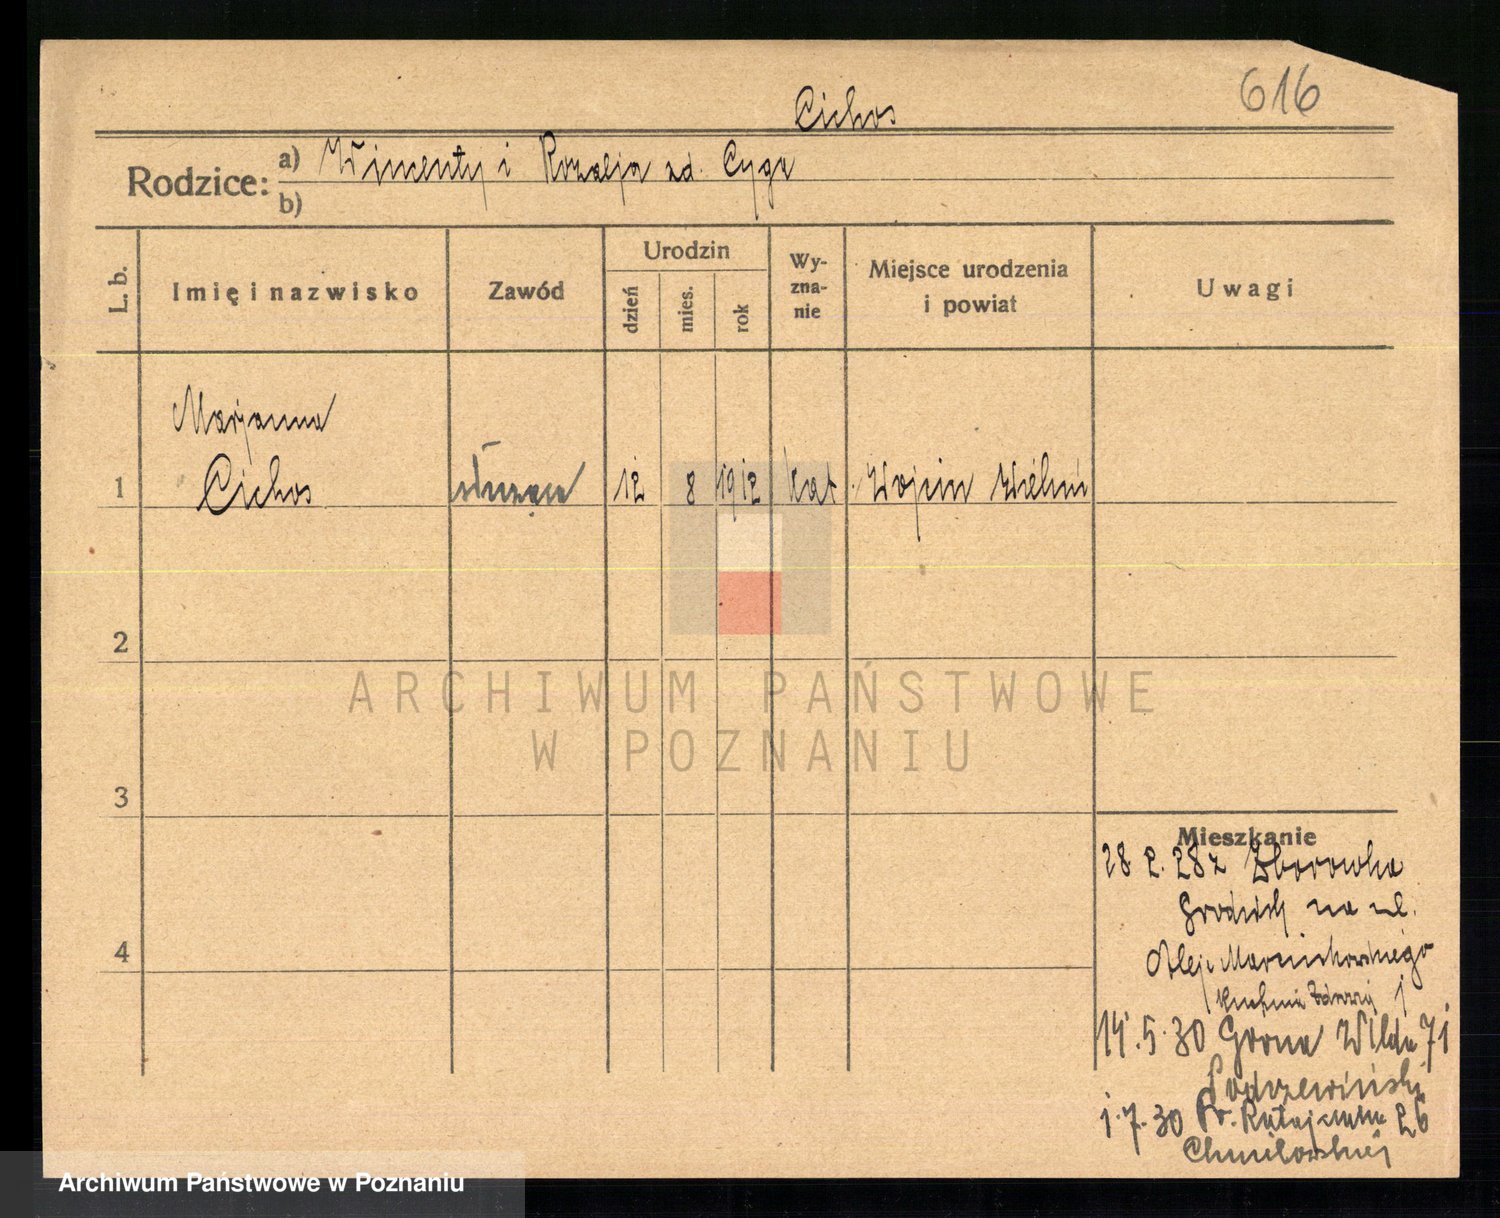 616
Cichos
Rodzice: a) Wincenty i Rozalja zd. Cyga
b)
L. b.
Imię i nazwisko
Zawód
Urodzin
dzień
mies.
rok
Wy-
zna-
nie
Miejsce urodzenia
i powiat
Uwagi
Marjanna
1 Cichos służąca 12 8 1912 kat Wojcin Wieluń
2
3
4
ARCHIWUM PAŃSTWOWE
W POZNANIU
Mieszkanie
28 2. 28 z Zborowka
Grodzisk na ul.
Aleje Marcinkowskiego
1
14.5.30 Górna Wilda 71
1.7.30 Pr. Ratajczaka 26
Archiwum Państwowe w Poznaniu